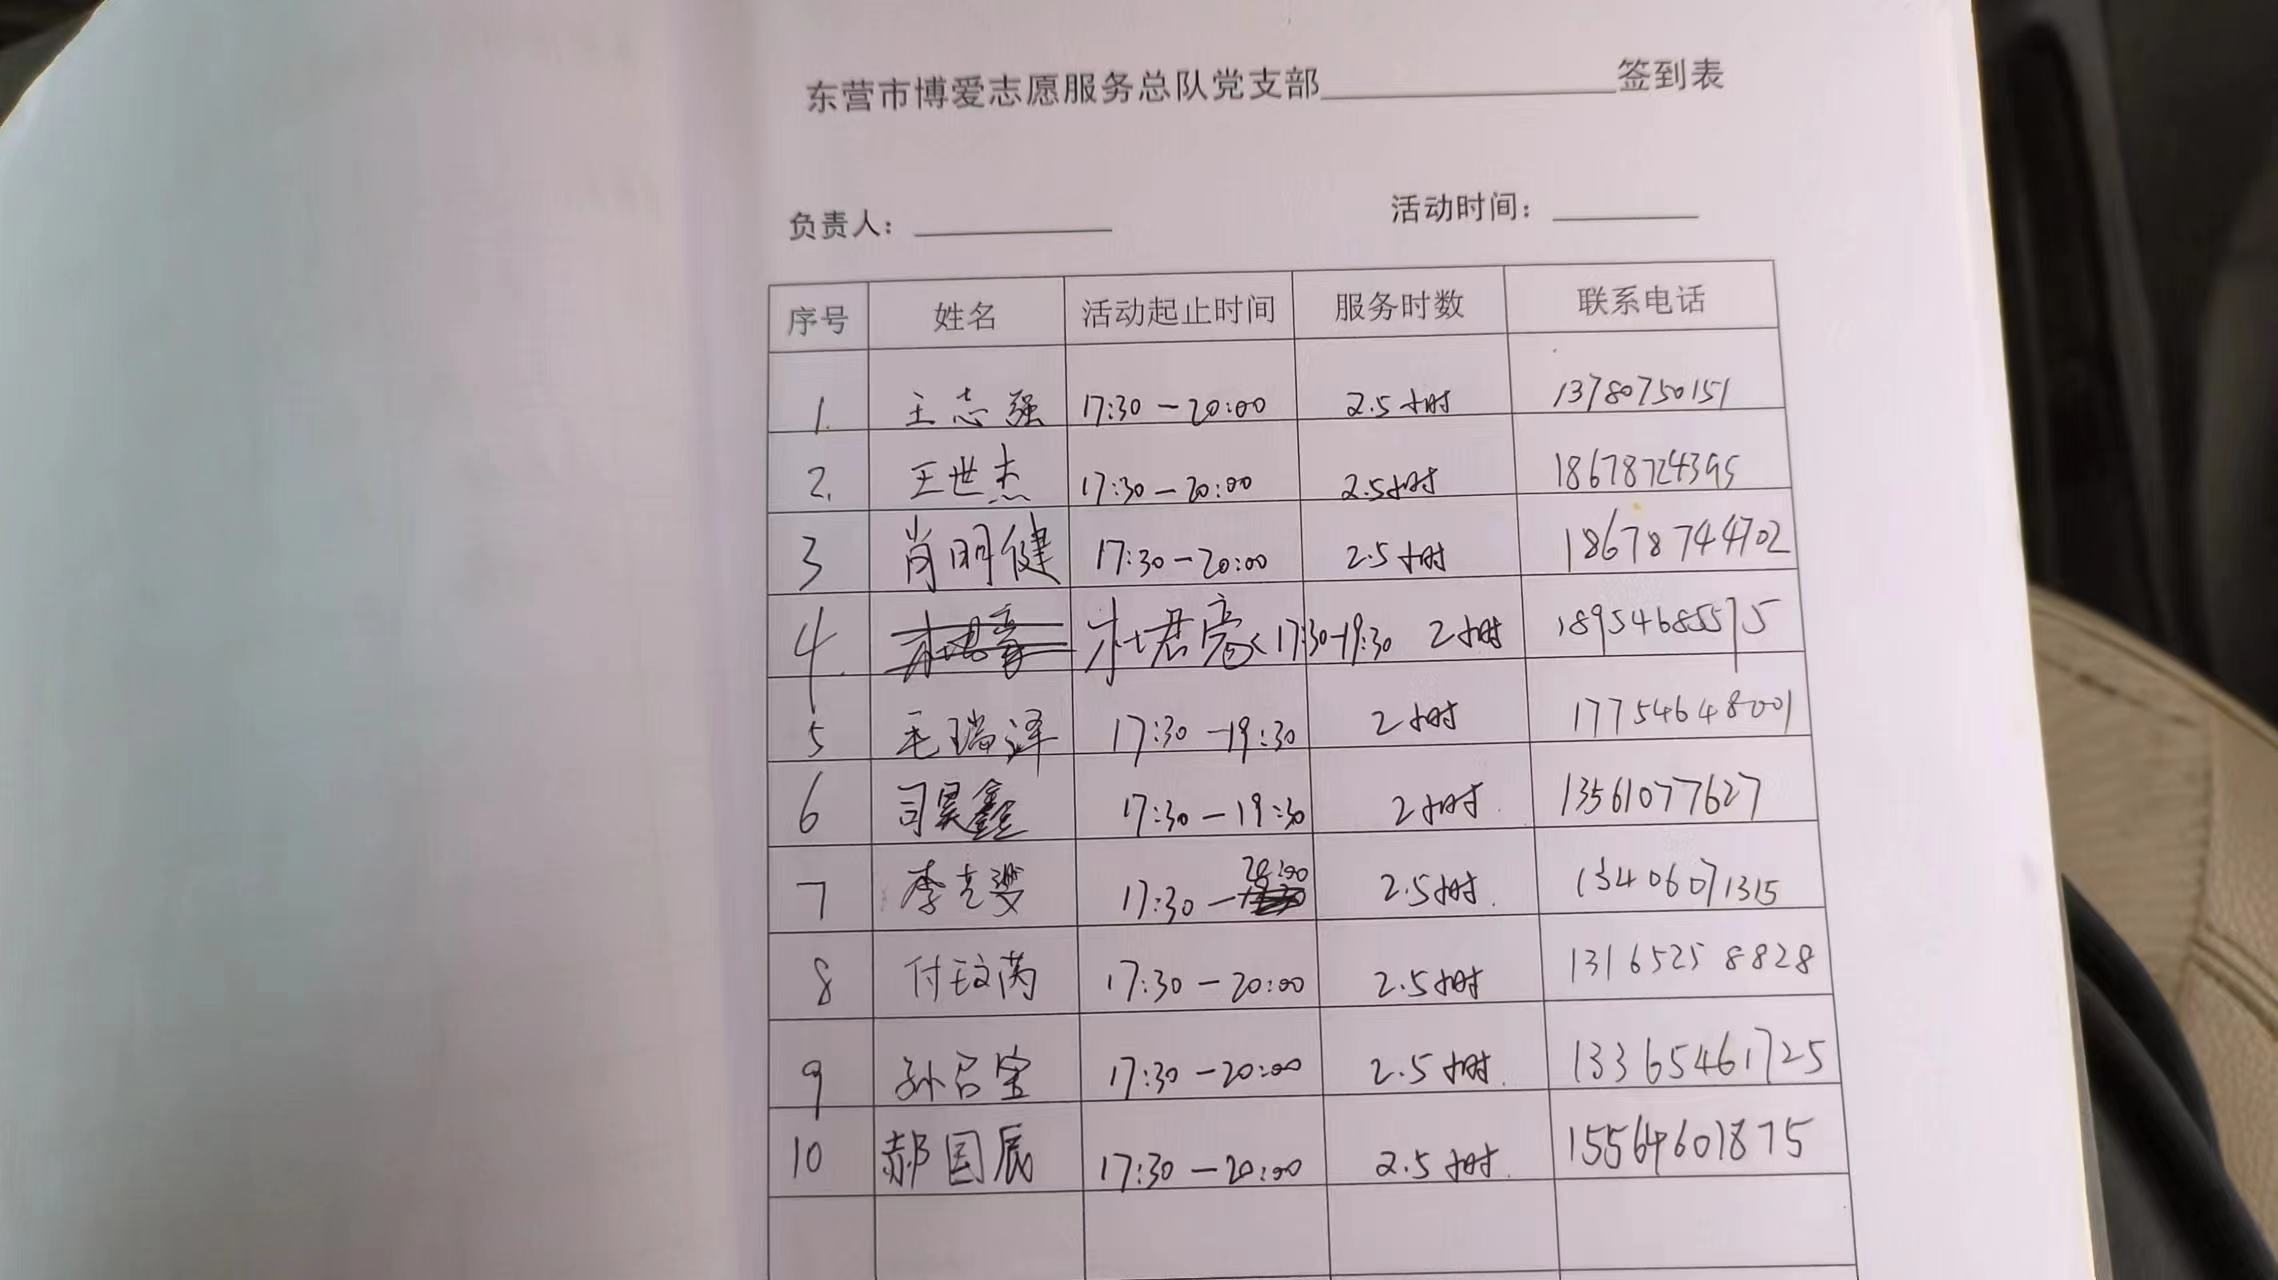 东营市博爱志愿服务总队党支部____________签到表
负责人：________ 活动时间：______
序号 姓名 活动起止时间 服务时数 联系电话
1. 王志强 17:30-20:00 2.5小时 13780750151
2. 王世杰 17:30-20:00 2.5小时 18678724395
3 肖明健 17:30-20:00 2.5小时 18678744702
4. 杜君亮 17:30-19:30 2小时 18954685575
5 毛瑞泽 17:30-19:30 2小时 17754648001
6 司昊鑫 17:30-19:30 2小时. 13561077627
7 李克 17:30-20:00 2.5小时. 13406071315
8 付玟芮 17:30-20:00 2.5小时 13165258828
9 孙召宝 17:30-20:00 2.5小时. 13365461725
10 郝国辰 17:30-20:00 2.5小时. 15564601875